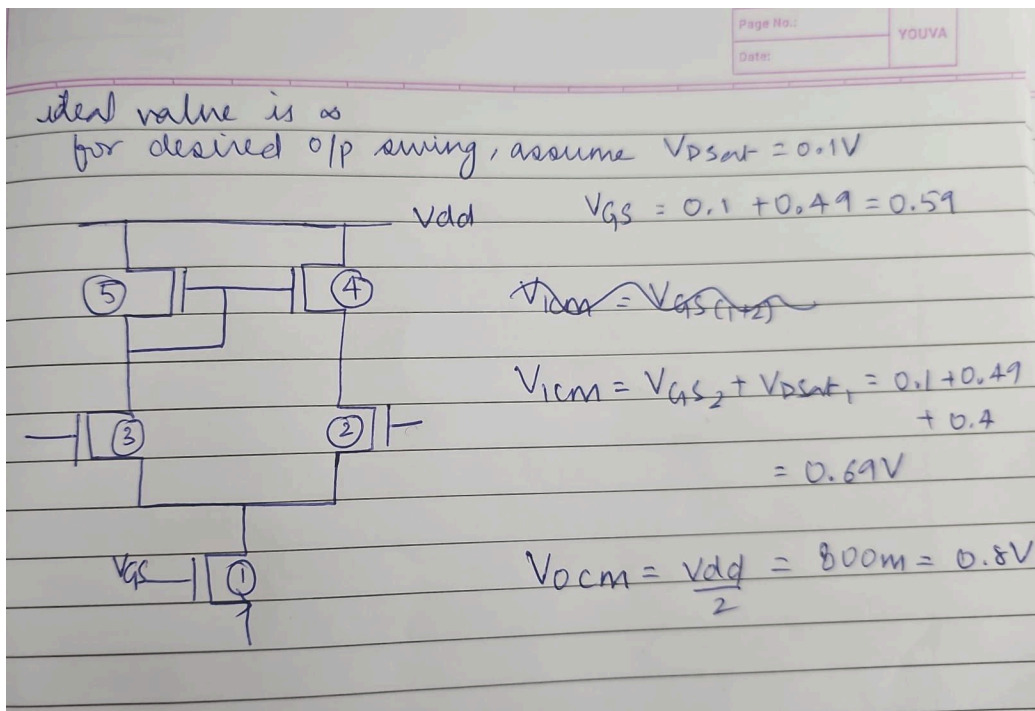 Page No.:
Date:
YOUVA
ideal value is ∞
for desired o/p swing, assume VDsat = 0.1V
Vdd
VGS = 0.1 + 0.49 = 0.59
5
4
Vicm = VGS(1+2)
Vicm = VGS2 + VDSat1 = 0.1 + 0.49
+ 0.4
= 0.69V
3
2
VGS
1
Vocm = Vdd/2 = 800m = 0.8V